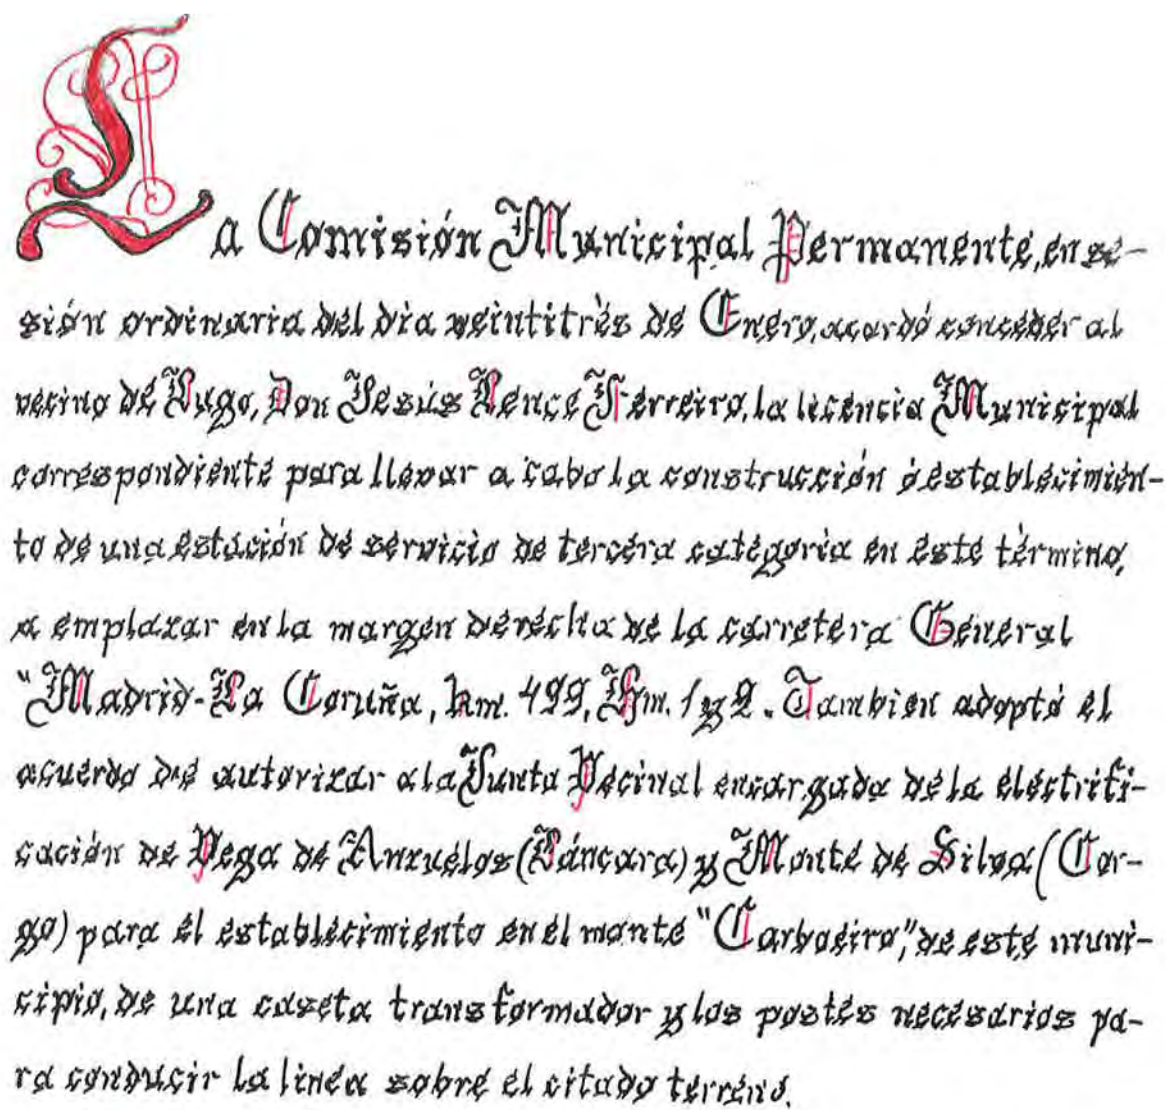 La Comisión Municipal Permanente, en se-
sión ordinaria del dia veintitrès de Enero, acordó conceder al
vecino de Lugo, Don Jesús Pence Ferreiro, la licencia Municipal
correspondiente para llevar a cabo la construcción ó establecimien-
to de una estación de servicio de tercera categoria en este término,
a emplazar en la margen derecha de la carretera General
"Madrid-La Coruña, km. 499, Hm. 1 y 2. Tambien adoptó el
acuerdo de autorizar a la Junta Vecinal encargada de la electrifi-
cación de Vega de Anzuelos (Láncara) y Monte de Silva (Cor-
go) para el establecimiento en el monte "Carboeiro", de este muni-
cipio, de una caseta transformador y los postes necesarios pa-
ra conducir la linea sobre el citado terreno.